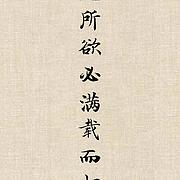 所欲必满载而